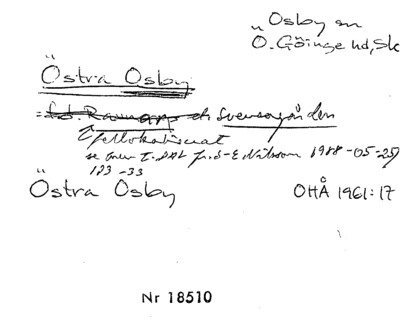 Osby sn
Ö. Göinge hd, Sk
Östra Osby
= f.d. och Svensagården
Ej lokaliserat
se även fr. S-E. Nilsson 1988-05-25
183-33
Östra Osby
OHÅ 1961:17
Nr 18510